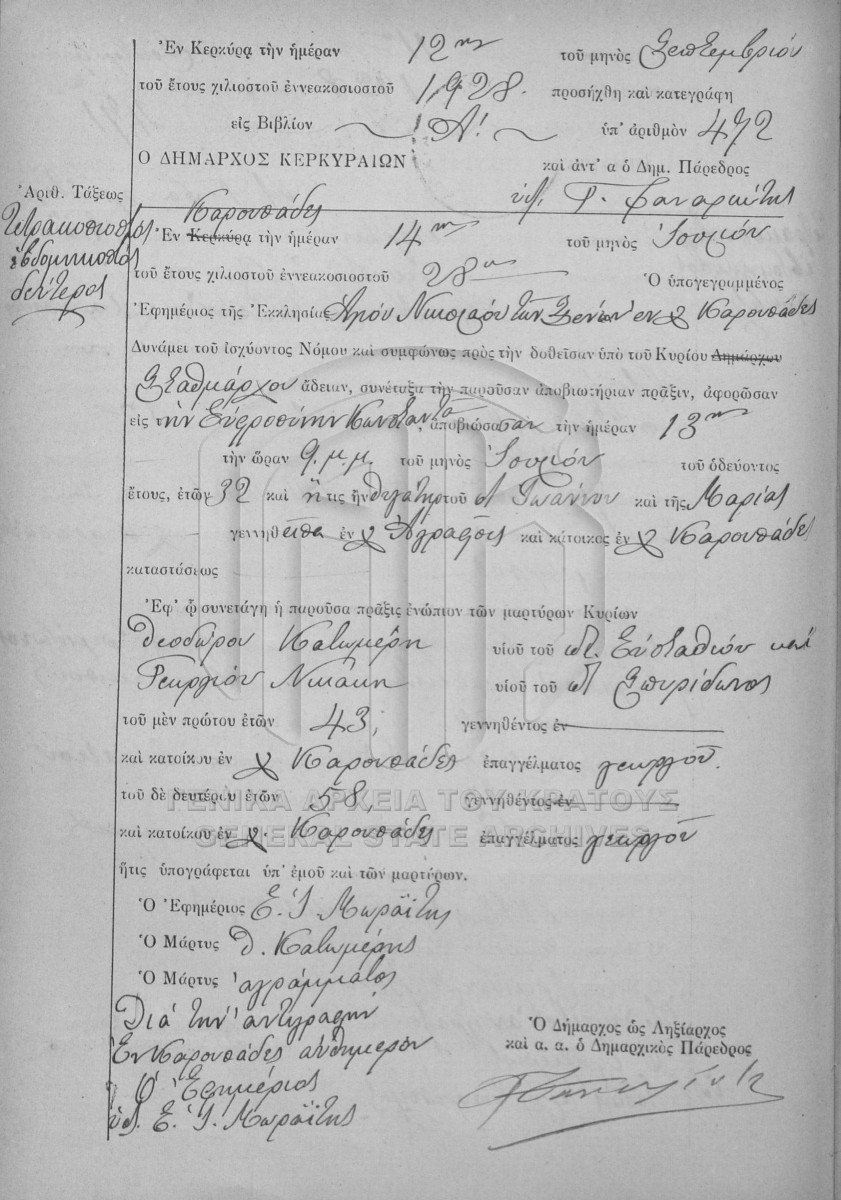 Ἐν Κερκύρᾳ τὴν ἡμέραν 12ην τοῦ μηνὸς Σεπτεμβρίου
τοῦ ἔτους χιλιοστοῦ ἐννεακοσιοστοῦ 1928. προσήχθη καὶ κατεγράφη
εἰς Βιβλίον Α! ὑπ' ἀριθμὸν 472
Ο ΔΗΜΑΡΧΟΣ ΚΕΡΚΥΡΑΙΩΝ καὶ ἀντ' α ὁ Δημ. Πάρεδρος
Ἀριθ. Τάξεως
Τετρακοσιοστὸς
ἑβδομηκοστὸς
δεύτερος
Καρουσάδες
Ἐν Κερκύρᾳ τὴν ἡμέραν 14ην τοῦ μηνὸς Ἰουλίου
τοῦ ἔτους χιλιοστοῦ ἐννεακοσιοστοῦ 28ου Ὁ ὑπογεγραμμένος
Ἐφημέριος τῆς Ἐκκλησίας Ἁγίου Νικολάου τῶν Ξένων ἐν χ Καρουσάδες
Δυνάμει τοῦ ἰσχύοντος Νόμου καὶ συμφώνως πρὸς τὴν δοθεῖσαν ὑπὸ τοῦ Κυρίου Δημάρχου
Σταθμάρχου ἄδειαν, συνέταξα τὴν παροῦσαν ἀποβιωτήριαν πρᾶξιν, ἀφορῶσαν
εἰς τὴν Εὐφροσύνην Κωσταντα, ἀποβιώσασαν τὴν ἡμέραν 13ην
τὴν ὥραν 9 μ.μ. τοῦ μηνὸς Ἰουλίου τοῦ ὁδεύοντος
ἔτους, ἐτῶν 32 καὶ ἥτις ἦν θυγάτηρ τοῦ Ἰωάννου καὶ τῆς Μαρίας
γεννηθεῖσα ἐν χ Ἀγραφοῖς καὶ κάτοικος ἐν χ Καρουσάδες
καταστάσεως
Ἐφ' ᾧ συνετάγη ἡ παροῦσα πρᾶξις ἐνώπιον τῶν μαρτύρων Κυρίων
Θεοδώρου Κατωμέρη υἱοῦ τοῦ Εὐσταθίου καὶ
Γεωργίου Νικάκη υἱοῦ τοῦ Σπυρίδωνος
τοῦ μὲν πρώτου ἐτῶν 43, γεννηθέντος ἐν
καὶ κατοίκου ἐν χ Καρουσάδες ἐπαγγέλματος γεωργοῦ.
τοῦ δὲ δευτέρου ἐτῶν 58, γεννηθέντος ἐν
καὶ κατοίκου ἐν χ. Καρουσάδες ἐπαγγέλματος γεωργοῦ
ΓΕΝΙΚΑ ΑΡΧΕΙΑ ΤΟΥ ΚΡΑΤΟΥΣ
GENERAL STATE ARCHIVES
ἥτις ὑπογράφεται ὑπ' ἐμοῦ καὶ τῶν μαρτύρων.
Ὁ Ἐφημέριος Ε. Ἰ. Μωραΐτης
Ὁ Μάρτυς Θ. Κατωμέρης
Ὁ Μάρτυς ἀγράμματος
Διὰ τὴν ἀντιγραφήν
Ἐν Καρουσάδες αὐθημερόν
Ὁ Ἐφημέριος
Ε. Ἰ. Μωραΐτης
Ὁ Δήμαρχος ὡς Ληξίαρχος
καὶ α. α. ὁ Δημαρχικὸς Πάρεδρος